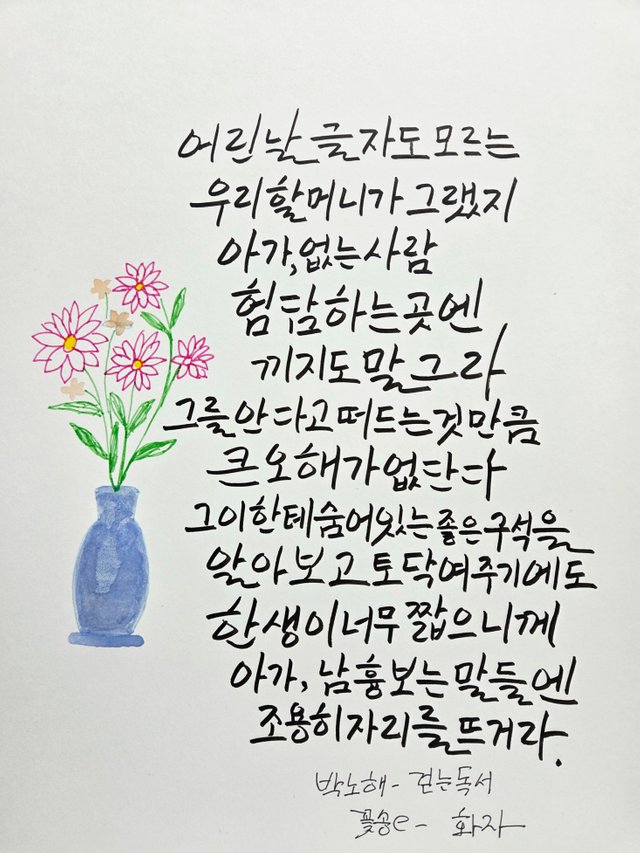 어린날 글자도 모르는
우리 할머니가 그랬지
아가, 없는 사람
험담하는 곳엔
끼지도 말그라
그를 안다고 떠드는 것만큼
큰 오해가 없단다
그이한테 숨어있는 좋은 구석을
알아보고 토닥여주기에도
한생이 너무 짧으니께
아가, 남 흉보는 말들엔
조용히 자리를 뜨거라.
박노해 - 걷는독서
꽃송e - 화자